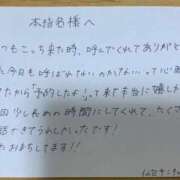 本指名様へ
いつもこっち来た時、呼んでくれてありがと
今日も呼ばれないのかな…って心配
てたから「予約したよ」って来て本当に嬉しか
回少し長めの時間にしてくれて、たく
話できてうれしかったです!
たおまちしてます!!